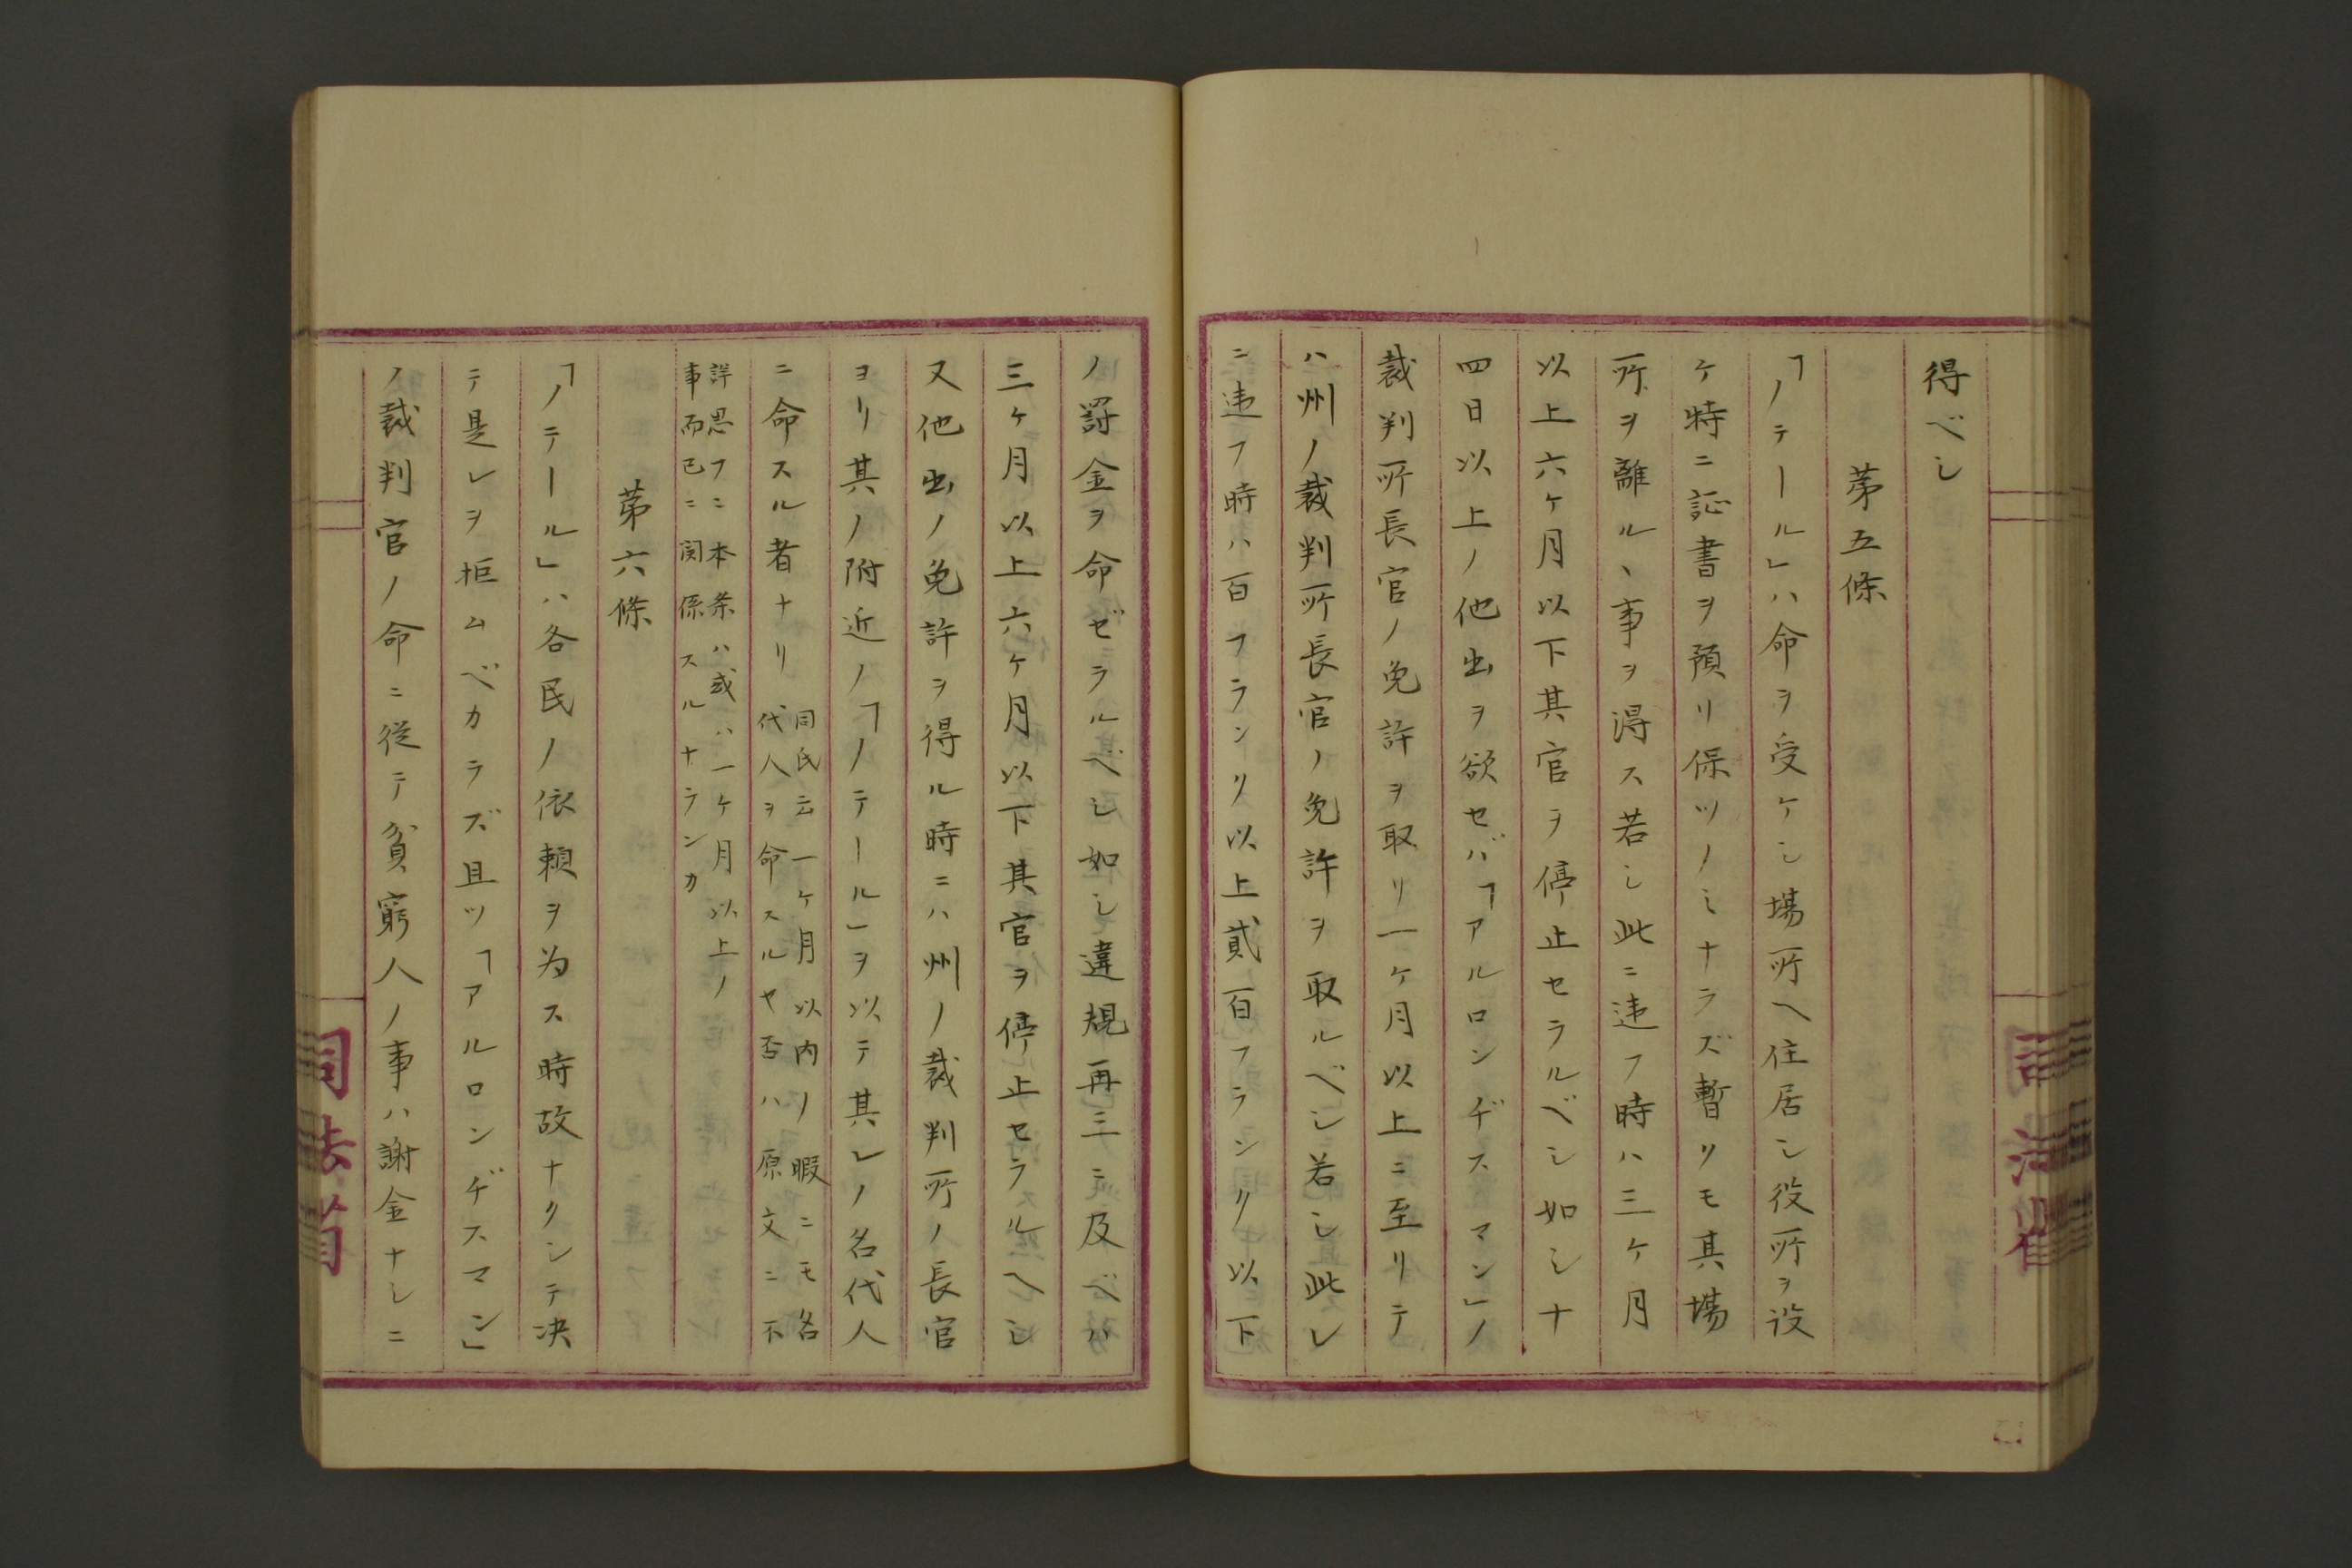 得ベシ
第五條
「ノテール」ハ命ヲ受ケシ場所ヘ住居シ役所ヲ設
ケ特ニ証書ヲ預リ保ツノミナラズ暫リモ其場
所ヲ離ルヽ事ヲ得ス若シ此ニ違フ時ハ三ケ月
以上六ケ月以下其官ヲ停止セラルベシ如シナ
四日以上ノ他出ヲ欲セバ「アルロンヂスマン」ノ
裁判所長官ノ免許ヲ取リ一ケ月以上ニ至リテ
ハ州ノ裁判所長官ノ免許ヲ取ルベシ若シ此レ
ニ違フ時ハ百フランリ以上貳百フランク以下
ノ罸金ヲ命ゼラルベシ如シ違規再三ニ及ベハ
三ケ月以上六ケ月以下其官ヲ停止セラルヘシ
又他出ノ免許ヲ得ル時ニハ州ノ裁判所ノ長官
ヨリ其ノ附近ノ「ノテール」ヲ以テ其レノ名代人
ニ命スル者ナリ
同氏云一ケ月以内ノ暇ニモ名
代人ヲ命スルヤ否ハ原文ニ不
詳思フニ本条ハ或ハ一ケ月以上ノ
事而已ニ関係スルナランカ
第六條
「ノテール」ハ各民ノ依頼ヲ為ス時故ナクシテ决
テ是レヲ拒ムベカラズ且ツ「アルロンヂスマン」
ノ裁判官ノ命ニ従テ貧窮人ノ事ハ謝金ナシニ
司法省
司法省